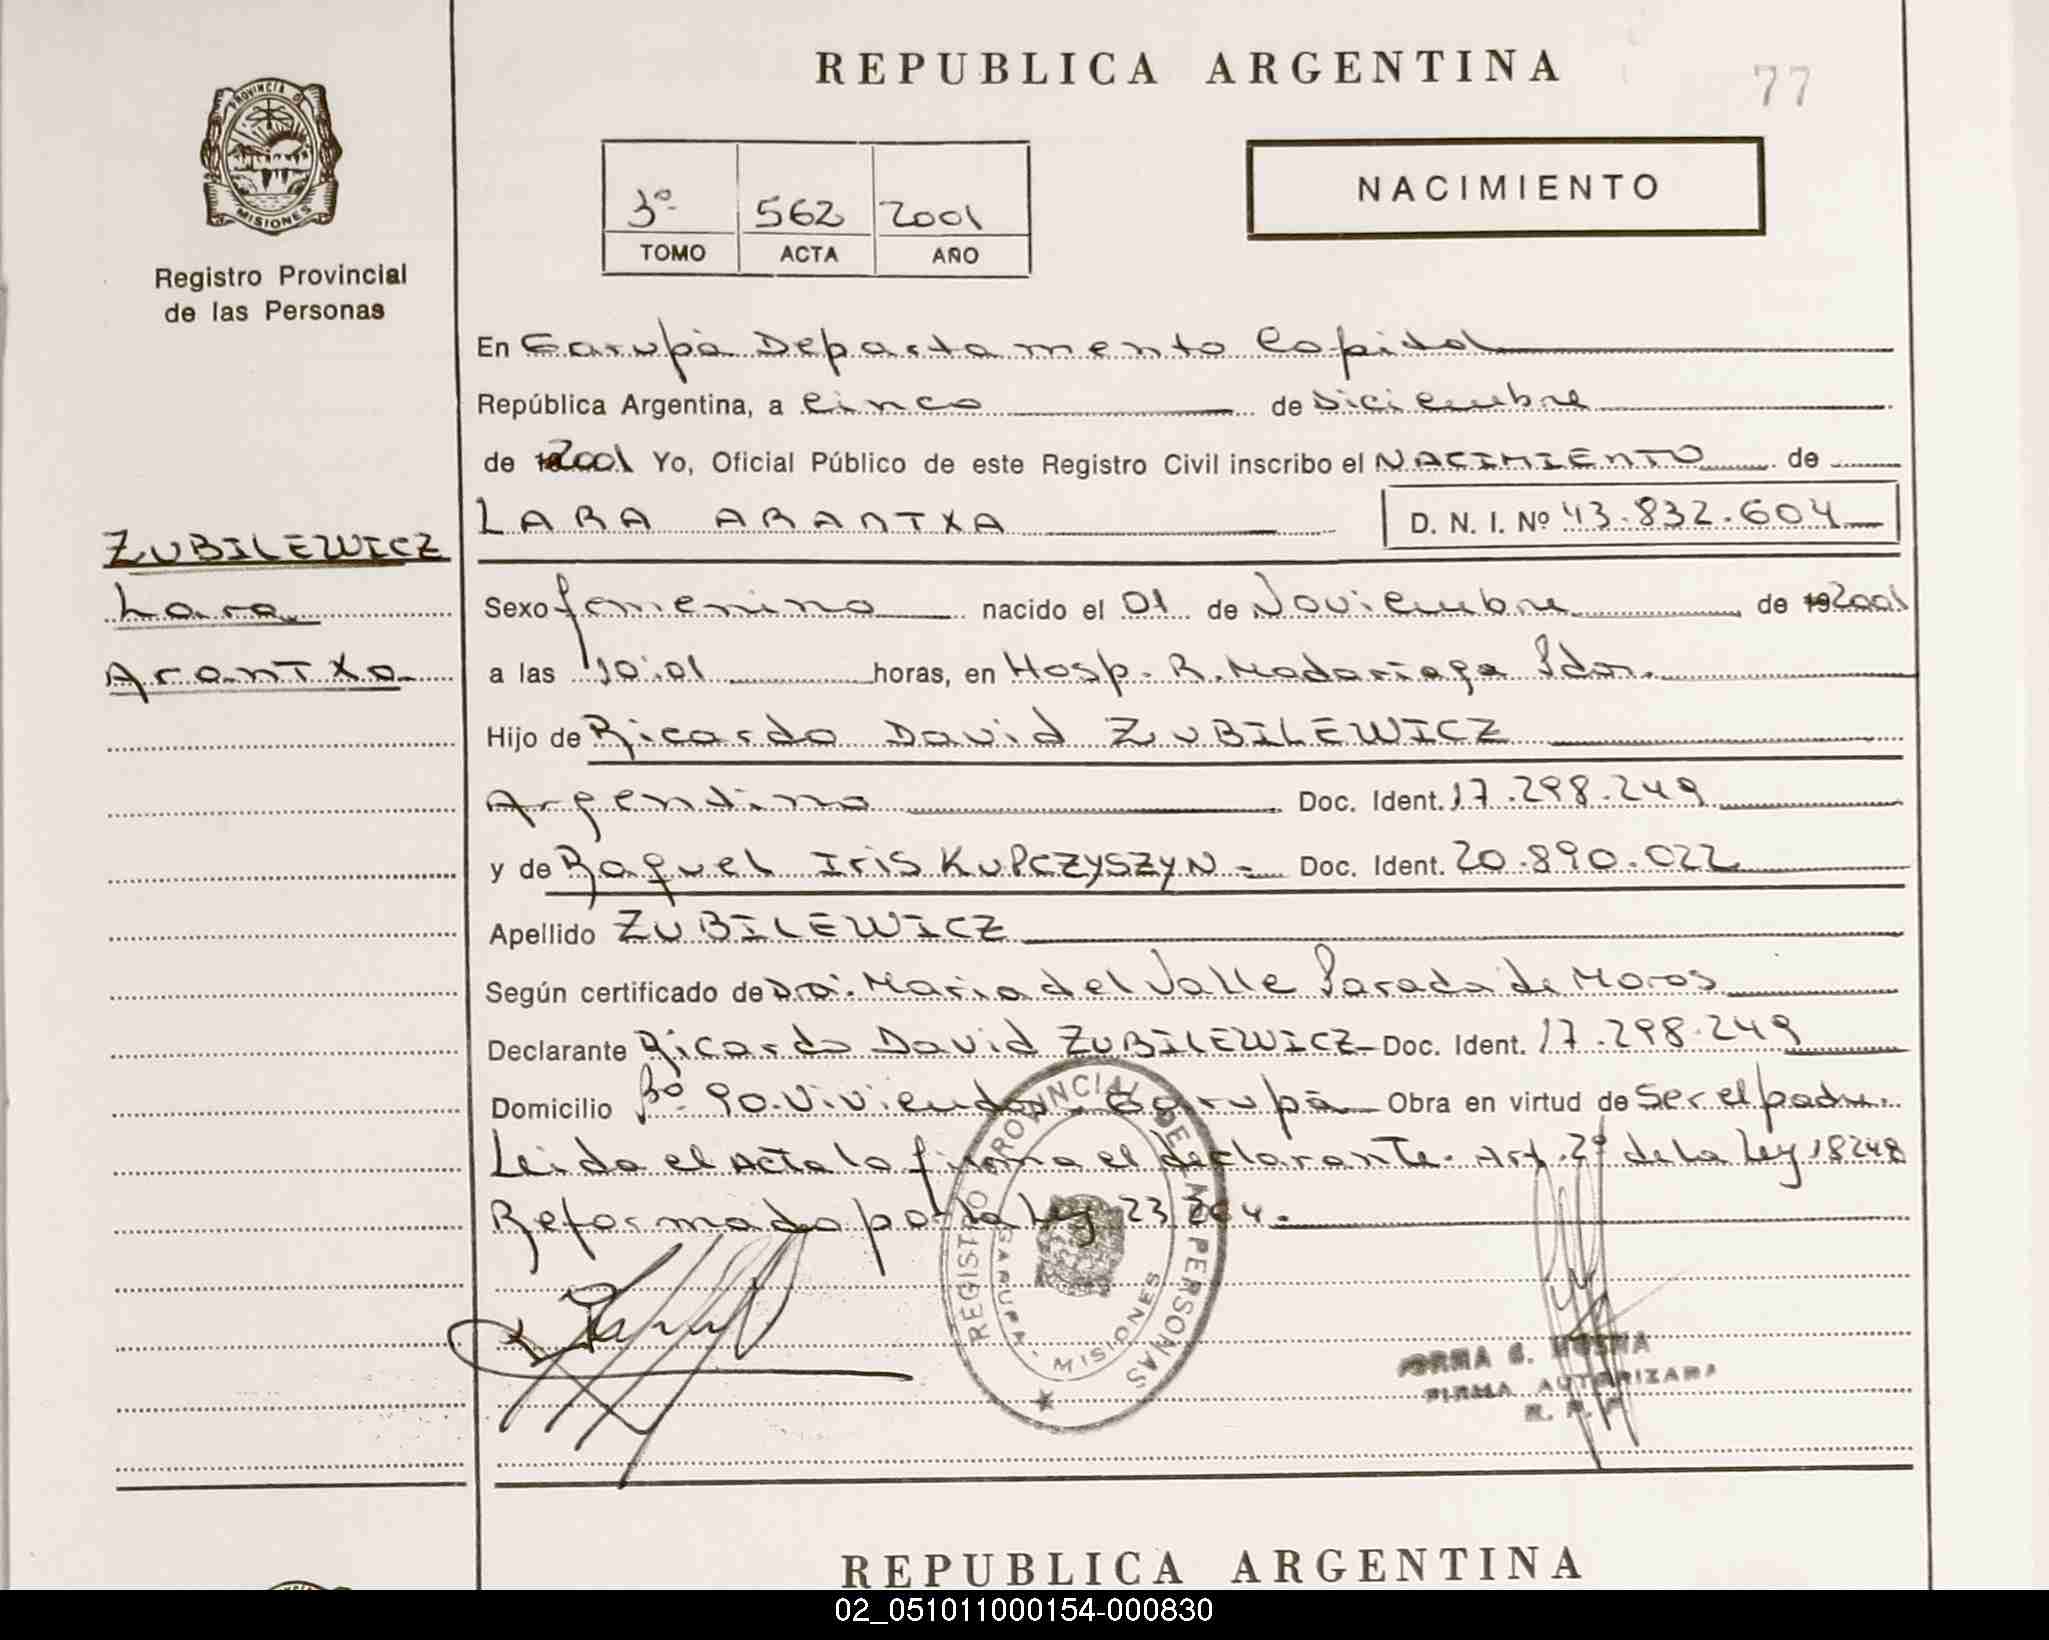 REPUBLICA ARGENTINA
77
PROVINCIA DE
MISIONES
Registro Provincial
de las Personas
3º 562 2001
TOMO ACTA AÑO
NACIMIENTO
En Garupá Departamento Capital
República Argentina, a cinco de Diciembre
de 2001 Yo, Oficial Público de este Registro Civil inscribo el NACIMIENTO de
LARA ARANTXA D. N. I. Nº 43.832.604
ZUBILEWICZ
Lara
Arantxa
Sexo femenino nacido el 01 de Noviembre de 2001
a las 10:01 horas, en Hosp. R. Madariaga Pdas.
Hijo de Ricardo David ZUBILEWICZ
Argentino Doc. Ident. 17.298.249
y de Raquel Iris KUPCZYSZYN = Doc. Ident. 20.890.022
Apellido ZUBILEWICZ
Según certificado de Dra. Maria del Valle Parada de Moros
Declarante Ricardo David ZUBILEWICZ Doc. Ident. 17.298.249
Domicilio Bº 90 Viviendas - Garupá Obra en virtud de Ser el padre.
Leida el Acta la firma el declarante. Art. 2º de la Ley 18248
Reformado por la Ley 23.264.
REGISTRO PROVINCIAL DE LAS PERSONAS
GARUPA - MISIONES
FIRMA AUTORIZADA
R. P. P.
REPUBLICA ARGENTINA
02_051011000154-000830